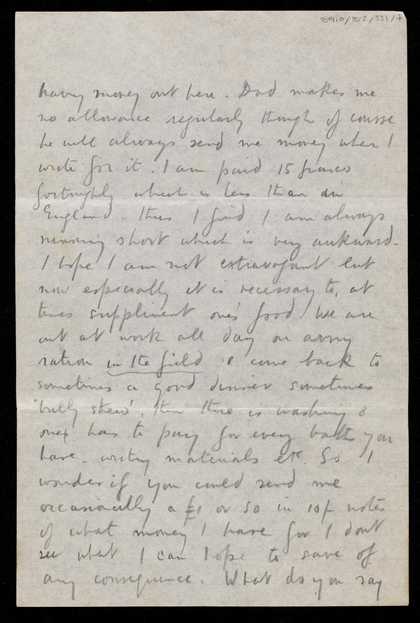 having money out here. Dad makes me
no allowance regularly though of course
he will always send me money when I
write for it. I am paid 15 francs
fortnightly which is less than in
England. Thus I find I am always
running short which is very awkward.
I hope I am not extravagant but
now especially it is necessary to, at
times suppliment one's food. We are
out at work all day on army
ration in the field & come back to
sometimes a good dinner sometimes
'bully stew'. Then there is washing &
one has to pay for every bath you
have. writing materials etc. So I
wonder if you could send me
occasionally a £1 or so in 10/ notes
of what money I have for I don't
see what I can hope to save of
any consequence. What do you say